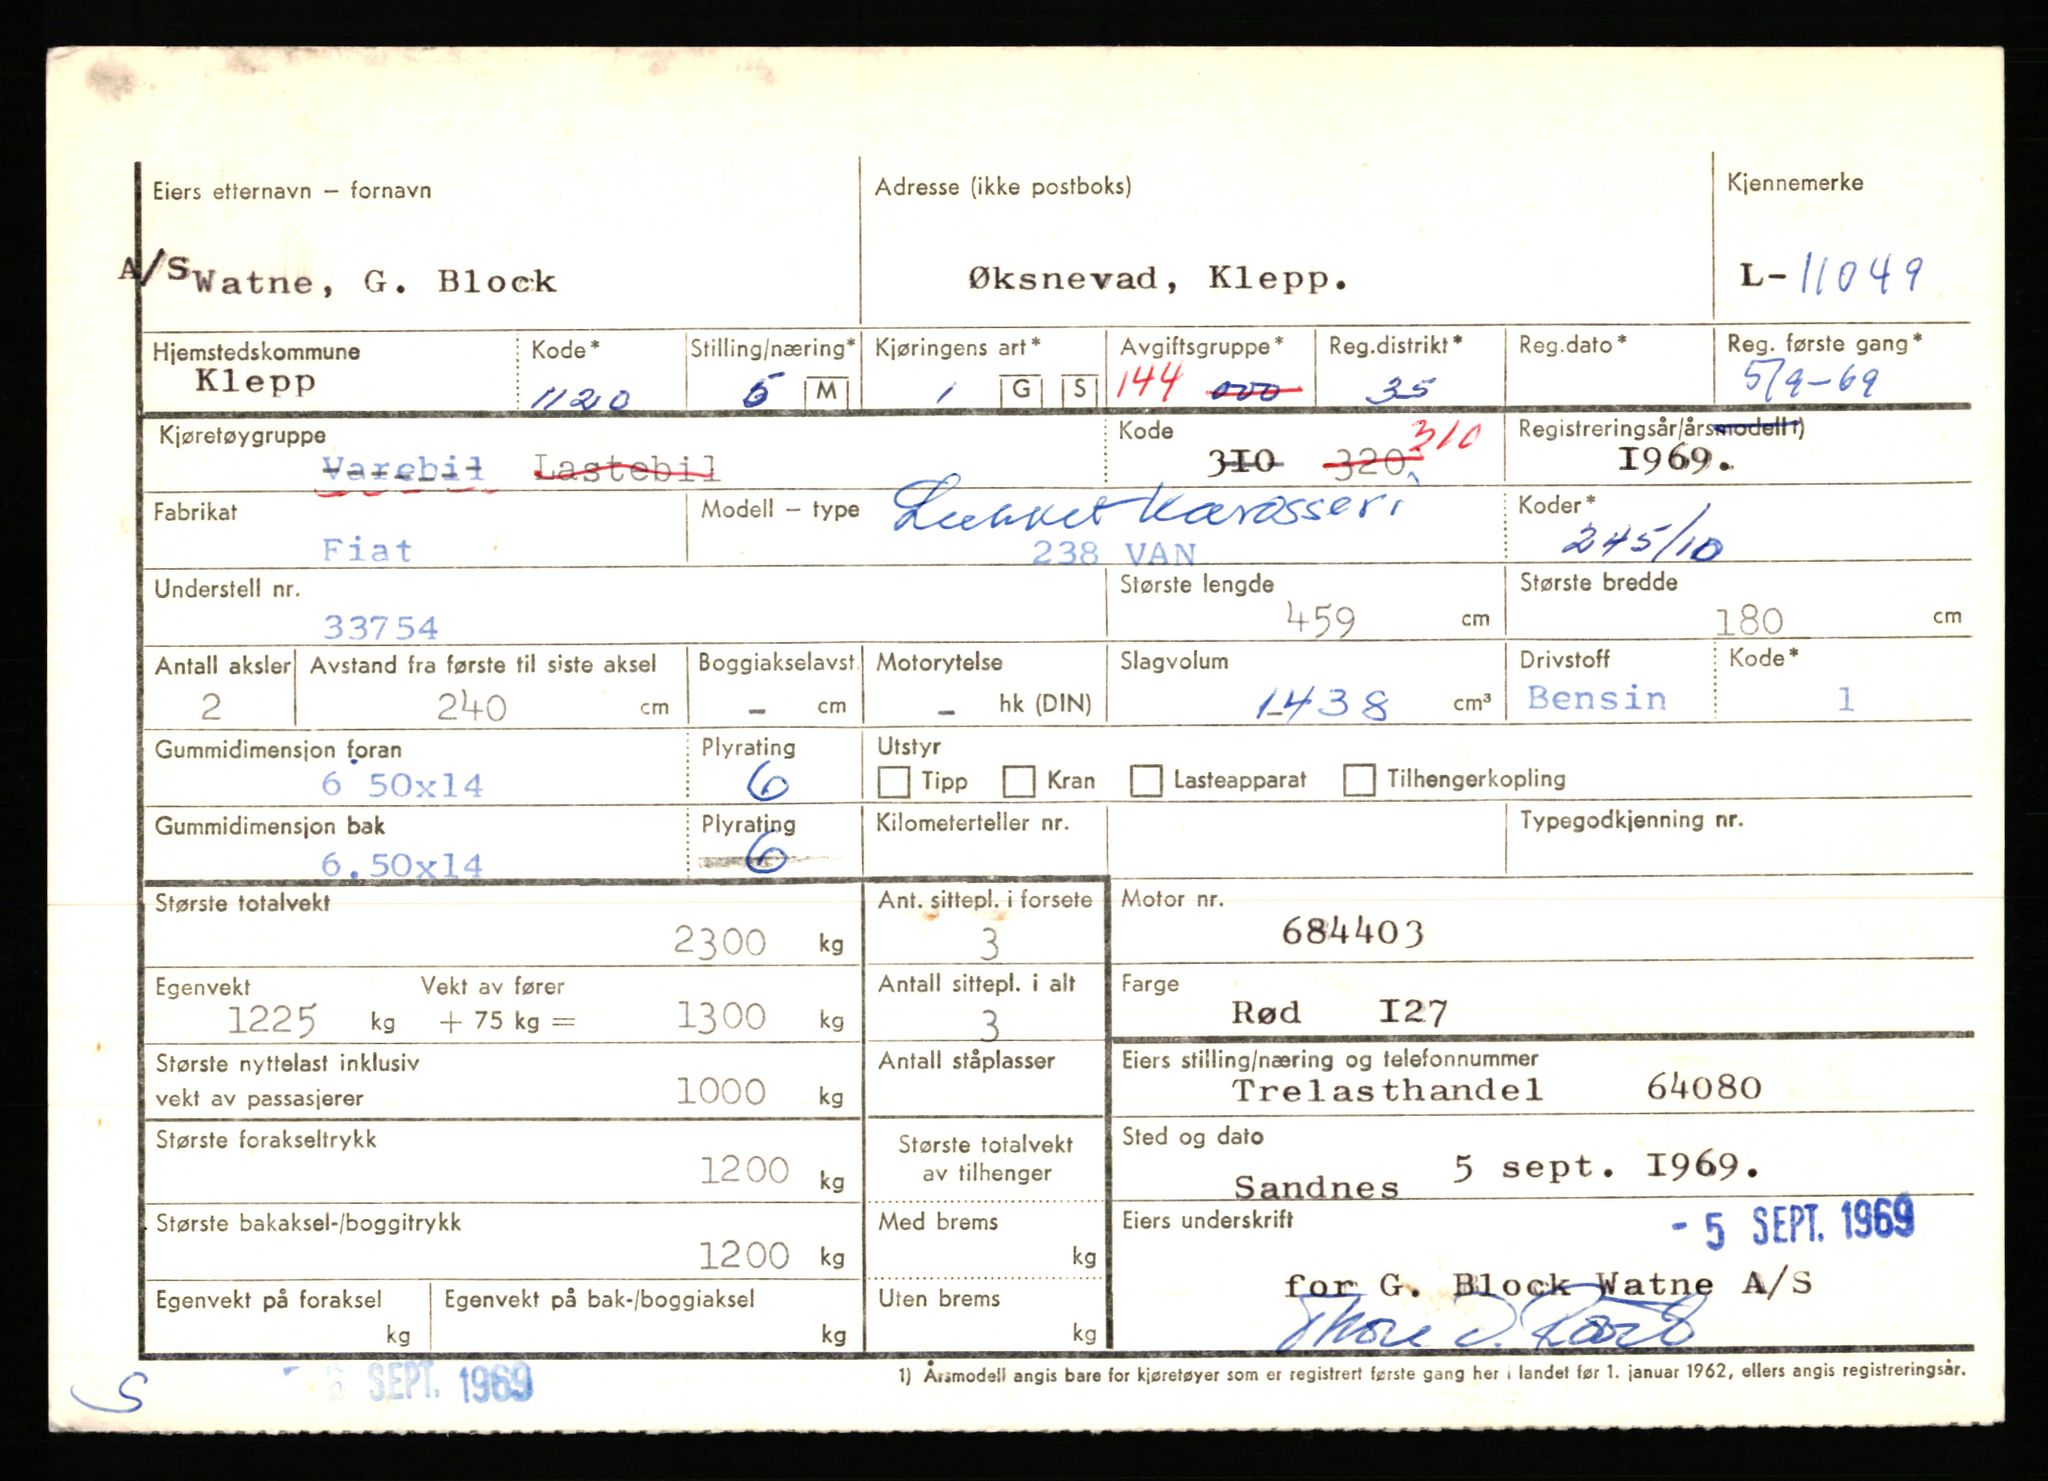 Eiers etternavn – fornavn
Adresse (ikke postboks)
Kjennemerke
A/S Watne, G. Block
Øksnevad, Klepp.
L-11049
Hjemstedskommune
Kode*
Stilling/næring*
Kjøringens art*
Avgiftsgruppe*
Reg.distrikt*
Reg.dato*
Reg. første gang*
Klepp
1120
6 M
1 G S
144 000
35
5/9-69
Kjøretøygruppe
Kode
Registreringsår/årsmodell 1)
Varebil Lastebil
310 320 310
1969.
Fabrikat
Modell – type
Lukket karosseri
Koder*
Fiat
238 VAN
245/10
Understell nr.
Største lengde
Største bredde
33754
459 cm
180 cm
Antall aksler
Avstand fra første til siste aksel
Boggiakselavst.
Motorytelse
Slagvolum
Drivstoff
Kode*
2
240 cm
- cm
- hk (DIN)
1438 cm³
Bensin
1
Gummidimensjon foran
Plyrating
Utstyr
6.50x14
6
Tipp Kran Lasteapparat Tilhengerkopling
Gummidimensjon bak
Plyrating
Kilometerteller nr.
Typegodkjenning nr.
6.50x14
6
Største totalvekt
Ant. sittepl. i forsete
Motor nr.
2300 kg
3
684403
Egenvekt
Vekt av fører
Antall sittepl. i alt
Farge
1225 kg + 75 kg = 1300 kg
3
Rød I27
Største nyttelast inklusiv
vekt av passasjerer
1000 kg
Antall ståplasser
Eiers stilling/næring og telefonnummer
Trelasthandel 64080
Største forakseltrykk
1200 kg
Største totalvekt
av tilhenger
Sted og dato
Sandnes 5 sept. 1969.
Største bakaksel-/boggitrykk
1200 kg
Med brems
kg
Eiers underskrift
- 5 SEPT. 1969
for G. Block Watne A/S
Egenvekt på foraksel
kg
Egenvekt på bak-/boggiaksel
kg
Uten brems
kg
1) Årsmodell angis bare for kjøretøyer som er registrert første gang her i landet før 1. januar 1962, ellers angis registreringsår.
- 6 SEPT. 1969
S